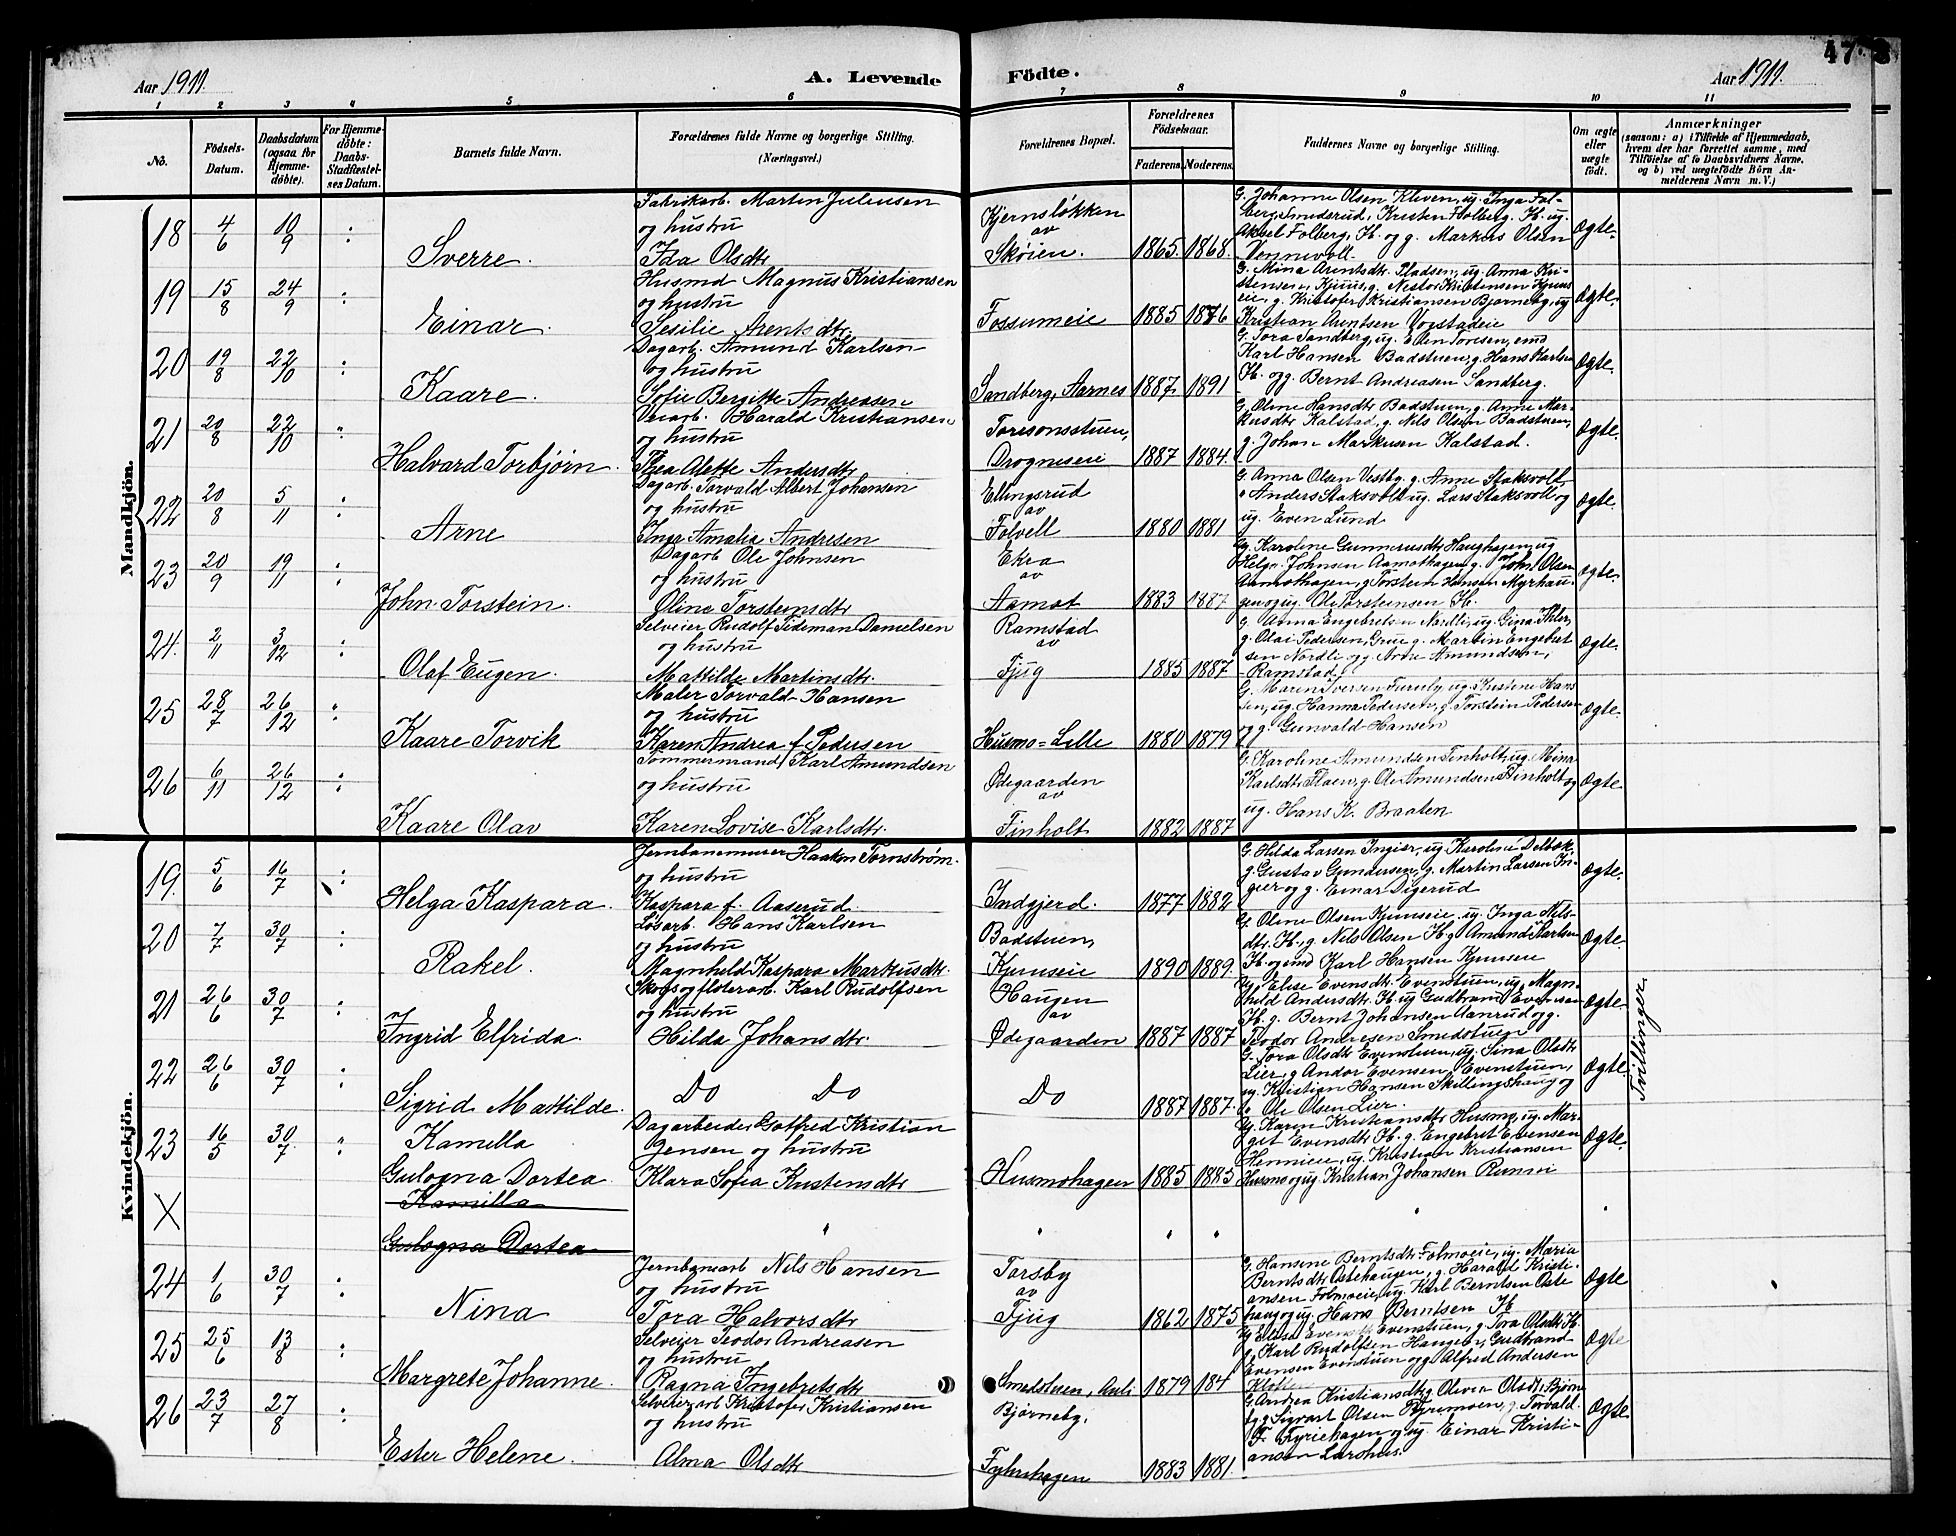 47
Aar 1911. A. Levende Födte. Aar 1911.
1 2 3 4 5 6 7 8 9 10 11
No. Födsels-Datum. Daabsdatum (ogsaa for Hjemme-döbte). For Hjemme-döbte: Daabs-Stadfæstel-ses Datum. Barnets fulde Navn. Forældrenes fulde Navne og borgerlige Stilling. (Næringsvei.) Forældrenes Bopæl. Forældrenes Födselsaar. Faderens. Moderens. Faddernes Navne og borgerlige Stilling. Om ægte eller uægte födt. Anmærkninger
(saasom: a) i Tilfælde af Hjemmedaab,
hvem der har forrettet samme, med
Tilföielse af to Daabsvidners Navne,
og b) ved uægtefödte Börn An-
melderens Navn m. V.)
Mandkjön.
18 4/6 10/9 Sverre. Fabrikarb. Martin Juliussen
og hustru
Ida Olsdtr. Kjernsløkken
av
Skøien. 1865. 1868. G. Johanne Olsen Kleven, ug. Inga Fol-
berg Smedsrud, Kristen Folberg. Ib. ug.
Aksel Folberg, Ib. og g. Markus Olsen
Vennevoll. Ægte.
19 15/8 24/9 Einar. Husmd Magnus Kristiansen
og hustru
Sesilie Arentsdtr. Fossumeie 1885 1876 G. Mina Arentsdtr. Pladsen, ug. Anna Kri-
stensen, Kjuus, g. Nestor Kristensen Kjuus
eie, g. Kristofer Kristiansen Bjørneby, ug
Kristian Arentsen Vorstadeie Ægte.
20 19/8 22/10 Kaare. Dagarb. Amund Karlsen
og hustru
Sofie Bergitte Andreasen Sandberg, Aarnes 1887. 1891 G. Tora Sandberg, ug. Ellen Toresen, emd
Karl Hansen Badstuen, g. Hans Karlsen
Ib. og g. Bernt Andreasen Sandberg. Ægte.
21 20/8 22/10 Halvard Torbjørn. Veiarb. Harald Kristiansen
og hustru
Thea Alette Andersdtr. Toresonsstuen,
Drogneseie 1887 1884. G. Oline Hansdtr Badstuen, g. Anne Mar-
kusdtr Kalstad, g. Nils Olsen Badstuen,
g. Johan Markusen Kalstad. Ægte.
22 20/8 5/11 Arne Dagarb. Torvald Albert Johansen
og hustru
Inga Amalia Andresen Ellingsrud
av
Folvell 1880 1881 G. Anna Olsen Vestby, g. Anne Staksvoll,
" Anders Staksvoll ug. Lars Staksvoll og
ug. Even Lund Ægte.
23 20/9 19/11 John Torstein. Dagarb Ole Johnsen
og hustru
Oline Torsteinsdtr Ekra
av
Aamot 1883 1887 Ug. Karoline Gunnerusdtr Haughagen, ug
Helge Johnsen Aamothagen, g. John Olsen
Aamothagen, g. Torstein Hansen Myrhau-
gen og ug. Ole Torsteinsen Ib. Ægte.
24. 2/11 3/12 Olaf Eugen. Selveier Rudolf Tideman Danielsen
og hustru
Matilde Martinsdtr. Ramstad
av
Fjug 1885 1887 g. Anna Engebretsen Nordli, ug. Gina Ihler,
g. Olai Pedersen, Grue g. Martin Engebret
sen Nordli og g. Arne Amundsen,
Ramstad Ægte.
25 28/7 26/12 Kaare Torvik Maler Torvald Hansen
og hustru
Karen Andrea f. Pedersen Husmo=Lille 1880 1879 G. Maren Iversen Furuly, ug. Kristene Hans
sen, ug. Hanna Pedersen, g. Torstein Pedersen
og g. Gunvald Hansen Ægte.
26 6/11 26/12 Kaare Olav Tømmermand Karl Amundsen
og hustru
Karen Lovise Karlsdtr. Ødegaarden
av
Finholt 1882 1887 G. Karoline Amundsen Finholt, ug. Mina
Karlsdtr. Flaen, g. Ole Amundsen Finholt og
ug. Hans K. Braaten Ægte.
Kvindekjön.
19. 5/6 16/7 Helga Kaspara. Jernbanemurer Haakon Tornstrøm.
og hustru
Kaspara f. Aaserud. Indgjerd. 1877 1882 G. Hilda Larsen Ingier, ug. Karoline Delbek
g. Gustav Gundersen, g. Martin Larsen In-
gier og g. Einar Digerud Ægte.
20 7/7 30/7 Rakel. Løsarb. Hans Karlsen
og hustru
Magnhild Kaspara Markusdtr. Badstuen,
Kjunseie 1890 1889. G. Oline Olsen Kjunseie, ug. Inga Nils-
dtr. Ib., g. Nils Olsen Ib. g Amund Karlsen
Ib og emd Karl Hansen Kjunseie Ægte.
21 26/6 30/7 Ingrid Elfrida. Skogs og fløterarb. Karl Rudolfsen
og hustru
Hilda Johansdtr. Haugen
av
Ødegaarden 1887 1887 Ug. Elise Evensdtr. Evenstuen, ug. Magn-
hild Andersdtr. Ib ug Gudbrand Evensen
Ib. g. Bernt Johansen Aanrud og g.
Teodor Andresen Smedstuen Ægte. Tvillinger.
22 26/6 30/7 Sigrid Matilde. Do Do Do 1887 1887. G. Tora Olsdtr Evenstuen, ug. Sina Olsdtr
Lier, g Andor Evensen, Evenstuen,
ug. Kristian Hansen Skillingshaug og
Ole Olsen Lier. Ægte.
23 16/5 30/7 Kamilla
Gulogna Dortea Dagarbeider Gotfred Kristian
Jensen og hustru
Klara Sofia Kristensdtr Husmohagen 1885 1885 Ug. Karen Kristiansdtr Husmo, ug. Mar-
git Evensdtr Ib. g. Engebret Evensen
Hennieie, ug. Kristian Kristiansen
Husmo og ug. Kristian Johansen Runnei Ægte.
X Kamilla
Gulogna Dortea " " " " "
24 1/6 30/7 Nina Jernbanearb Nils Hansen
og hustru
Tora Halvorsdtr Torsby
av
Fjug 1862 1875 G. Hansine Berntsdtr Folmoeie, ug. Maria
Berntsdtr Østehaugen, g. Harald Kristi-
ansen Folmoeie, ug. Karl Berntsen Øste
haug og ug. Hans Berntsen Ib Ægte
25 25/6 13/8 Margrete Johanne. Selveier Teodor Andreasen
og hustru
Ragna Ingebretsdtr Smedstuen, Auli 1879 184 Ug Elise Evensdtr Evenstuen, g. Tora Olsdtr Ib.
g. Karl Rudolfsen Haugen, Gudbrand
Evensen Evenstuen og g Alfred Andersen Ægte
26 23/7 27/8 Ester Helene. Selveierarb Kristofer Kristiansen
og hustru
Alma Olsdtr Bjørneby,
Fyhrihagen 1883 1881. G. Andrea Kristiansdtr g. Oliven Olsdtr, Bjørne
by g. Sigvart Olsen Byrimoen, g. Torvald
F. Fyriehagen og ug. Einar Kristi-
ansen Larshus. Ægte.